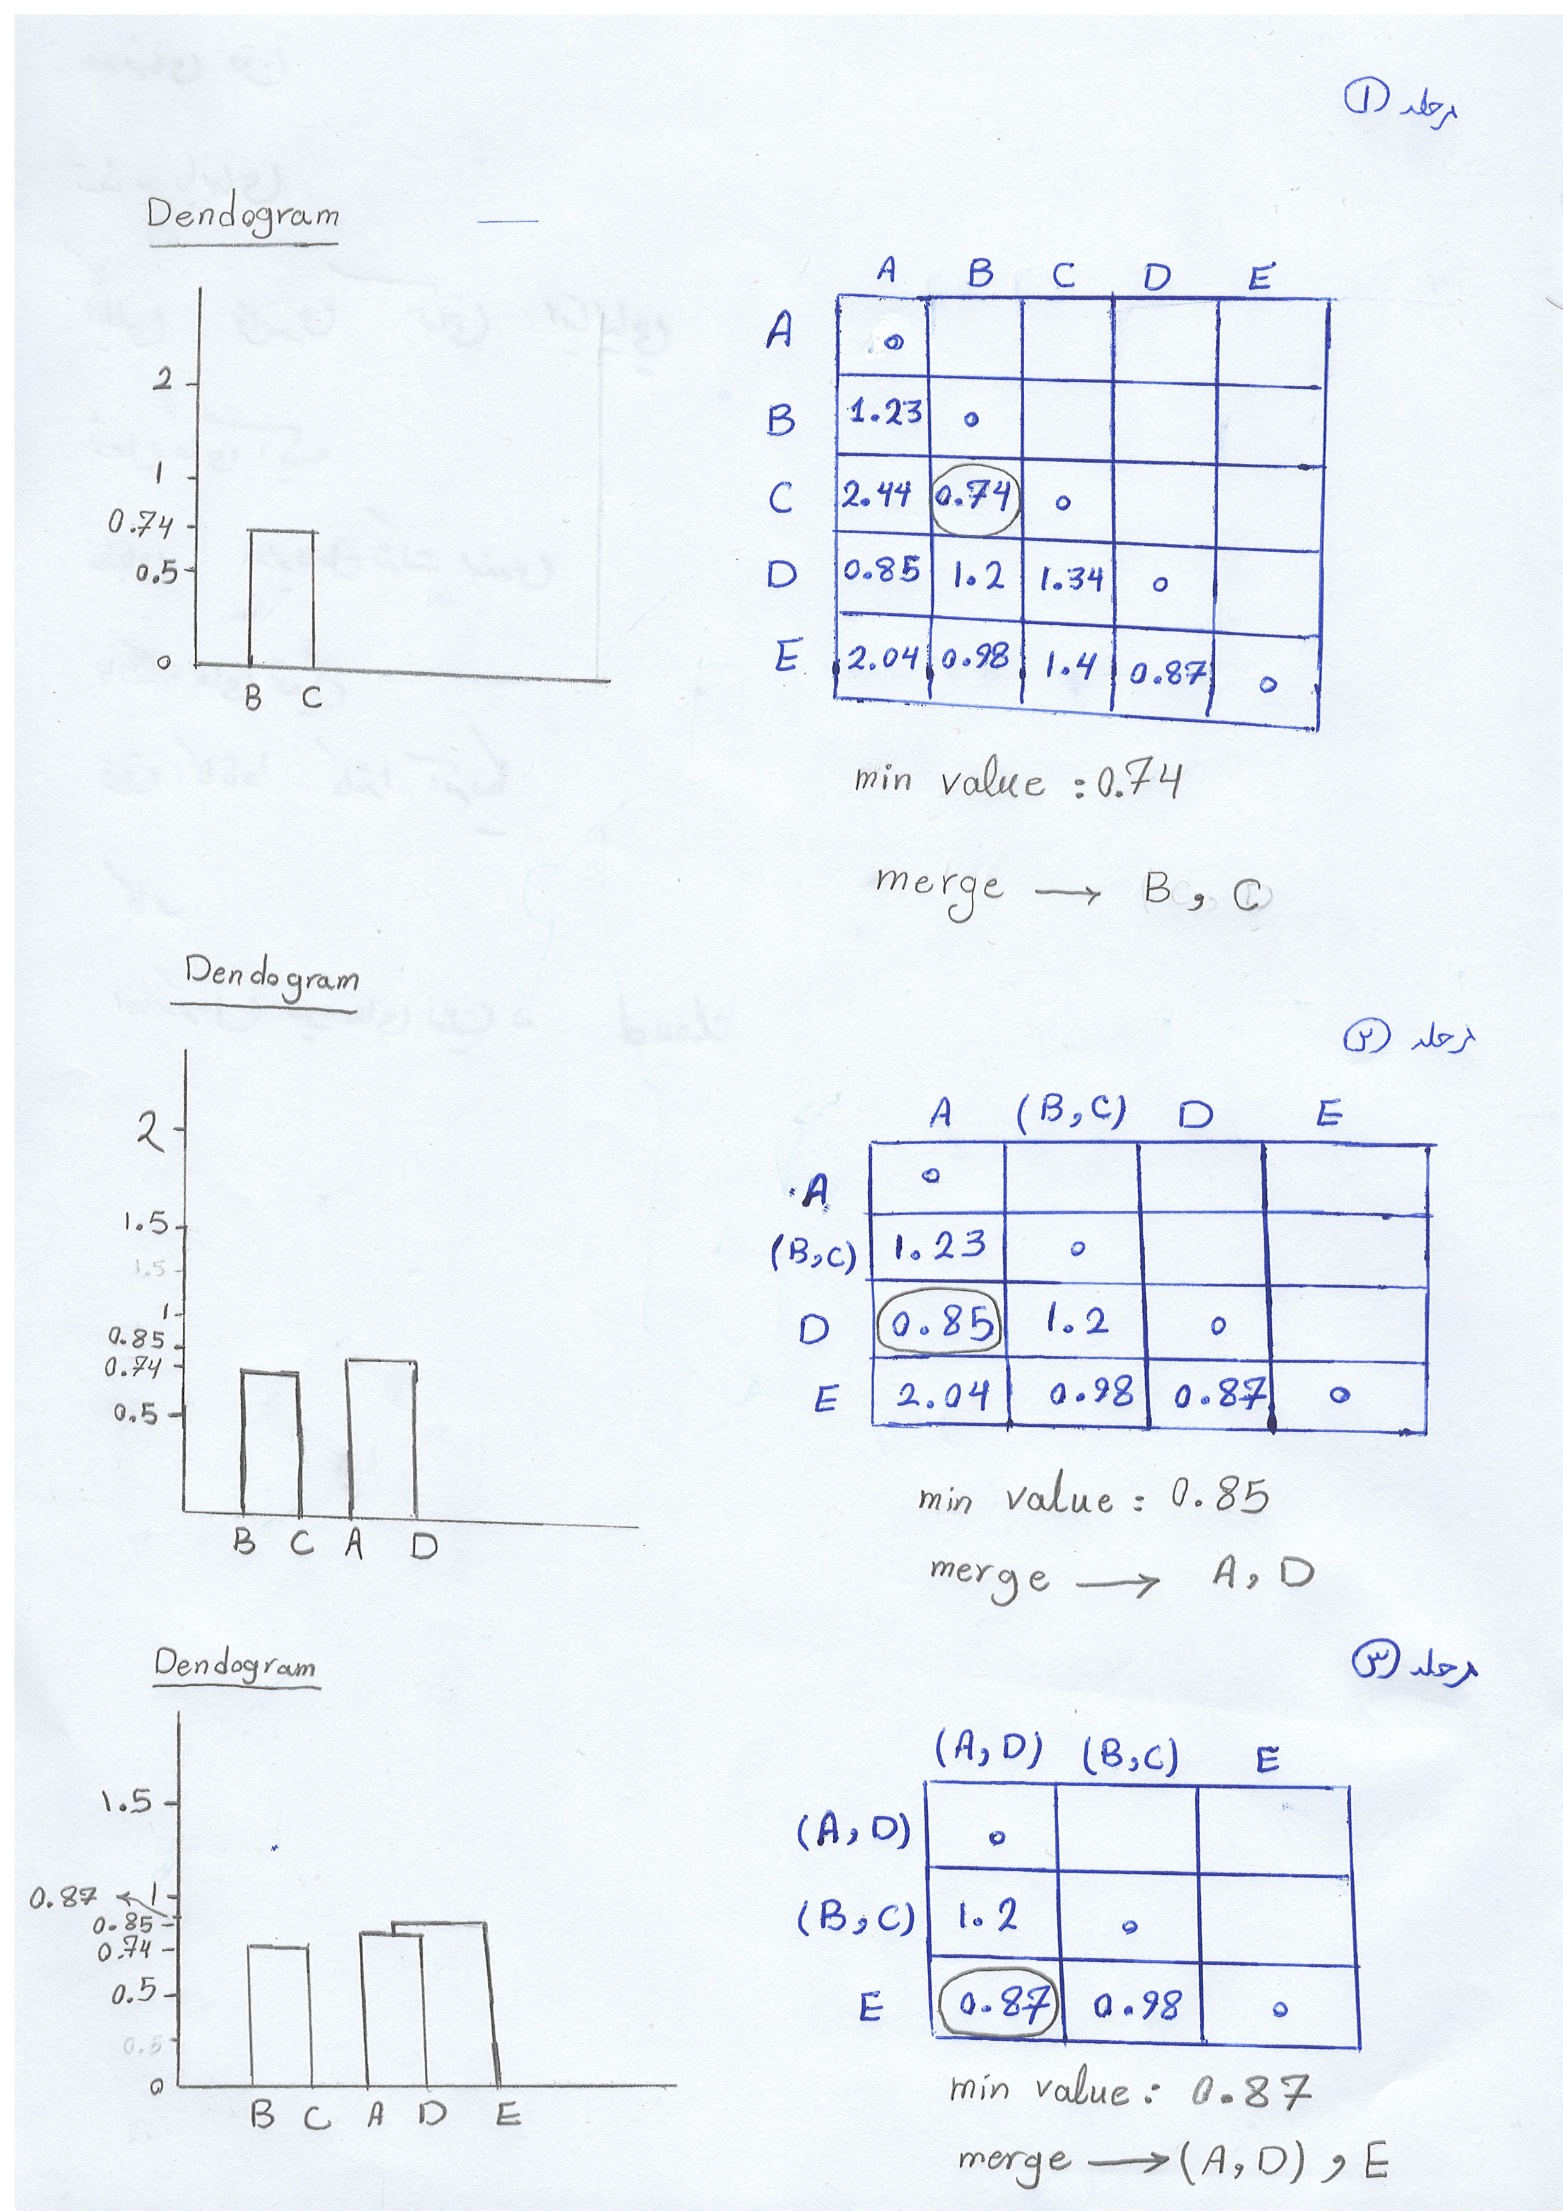 مرحله ①
Dendogram
2
1
0.74
0.5
0
B C
A B C D E
A 0
B 1.23 0
C 2.44 0.74 0
D 0.85 1.2 1.34 0
E 2.04 0.98 1.4 0.87 0
min value : 0.74
merge → B, C
مرحله ②
Dendogram
2
1.5
1.5
1
0.85
0.74
0.5
B C A D
A (B,C) D E
A 0
(B,C) 1.23 0
D 0.85 1.2 0
E 2.04 0.98 0.87 0
min value : 0.85
merge → A, D
مرحله ③
Dendogram
1.5
0.87 ← 1
0.85
0.74
0.5
0.5
0
B C A D E
(A,D) (B,C) E
(A,D) 0
(B,C) 1.2 0
E 0.87 0.98 0
min value : 0.87
merge → (A,D) , E